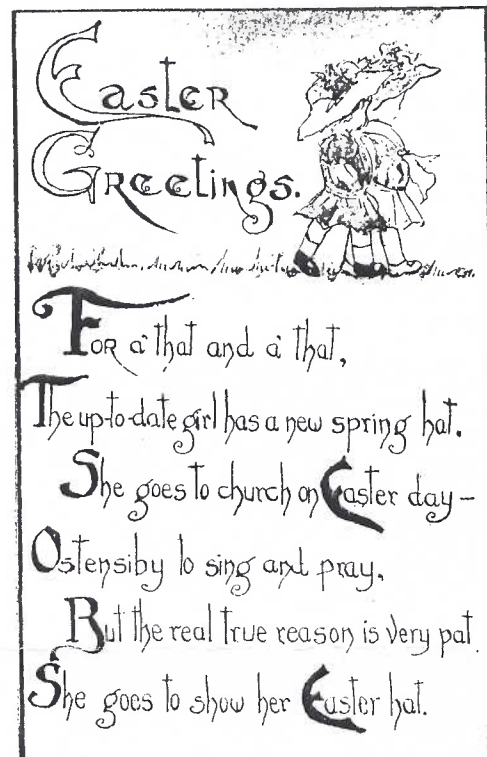 Easter
Greetings.
For a' that and a' that,
The up-to-date girl has a new spring hat.
She goes to church on Easter day-
Ostensiby to sing and pray,
But the real true reason is very pat.
She goes to show her Easter hat.